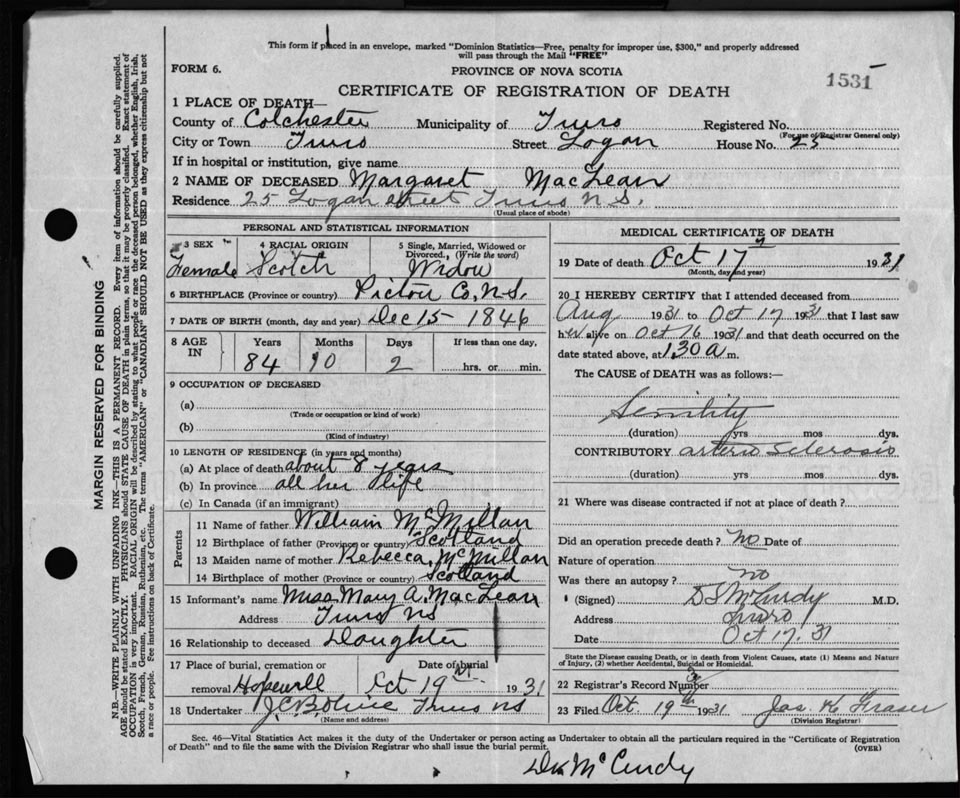 This form if placed in an envelope, marked "Dominion Statistics—Free, penalty for improper use, $300," and properly addressed
will pass through the Mail "FREE"
FORM 6.
PROVINCE OF NOVA SCOTIA
1531
CERTIFICATE OF REGISTRATION OF DEATH
1 PLACE OF DEATH—
County of Colchester Municipality of Truro Registered No.
(For use of Registrar General only)
City or Town Truro Street Logan House No. 25
If in hospital or institution, give name
2 NAME OF DECEASED Margaret MacLean
Residence 25 Logan street Truro N.S.
(Usual place of abode)
PERSONAL AND STATISTICAL INFORMATION
3 SEX 4 RACIAL ORIGIN 5 Single, Married, Widowed or
Divorced, (Write the word)
Female Scotch Widow
6 BIRTHPLACE (Province or country) Pictou Co, N.S.
7 DATE OF BIRTH (month, day and year) Dec 15 - 1846
8 AGE IN Years Months Days If less than one day,
84 10 2 hrs. or min.
9 OCCUPATION OF DECEASED
(a)
(Trade or occupation or kind of work)
(b)
(Kind of industry)
10 LENGTH OF RESIDENCE (in years and months)
(a) At place of death about 8 years
(b) In province all her life
(c) In Canada (if an immigrant)
Parents
11 Name of father William McMillan
12 Birthplace of father (Province or country) Scotland
13 Maiden name of mother Rebecca McMillan
14 Birthplace of mother (Province or country) Scotland
15 Informant's name Miss Mary A. MacLean
Address Truro NS
16 Relationship to deceased Daughter
17 Place of burial, cremation or Date of burial
removal Hopewell Oct 19th 1931
18 Undertaker J.C.B. Olive Truro NS
(Name and address)
MEDICAL CERTIFICATE OF DEATH
19 Date of death Oct 17 1931
(Month, day and year)
20 I HEREBY CERTIFY that I attended deceased from
Aug 1931 to Oct 17 1931 that I last saw
her alive on Oct 16 1931 and that death occurred on the
date stated above, at 1.30 a m.
The CAUSE of DEATH was as follows:—
Senility
(duration) yrs mos dys.
CONTRIBUTORY arterio Sclerosis
(duration) yrs mos dys.
21 Where was disease contracted if not at place of death?
Did an operation precede death? no Date of
Nature of operation
Was there an autopsy? no
(Signed) D S McCurdy M.D.
Address Truro
Date Oct 17, 31
State the Disease causing Death, or in death from Violent Causes, state (1) Means and Nature
of Injury, (2) whether Accidental, Suicidal or Homicidal.
22 Registrar's Record No.
23 Filed Oct. 19th 1931 Jas. K. Fraser
(Division Registrar)
Sec. 46—Vital Statistics Act makes it the duty of the Undertaker or person acting as Undertaker to obtain all the particulars required in the "Certificate of Registration
of Death" and to file the same with the Division Registrar who shall issue the burial permit.
(OVER)
Dr McCurdy
MARGIN RESERVED FOR BINDING
N.B.—WRITE PLAINLY WITH UNFADING INK—THIS IS A PERMANENT RECORD. Every item of information should be carefully supplied.
AGE should be stated EXACTLY. PHYSICIANS should STATE CAUSE OF DEATH in plain terms, so that it may be properly classified. Exact statement of
OCCUPATION is very important. RACIAL ORIGIN will be described by stating to what people or race the deceased person belonged, whether English, Irish,
Scotch, French, German, Russian, Ruthenian, etc. The terms "AMERICAN" or "CANADIAN" SHOULD NOT BE USED as they express citizenship but not
a race or people. See instructions on back of Certificate.